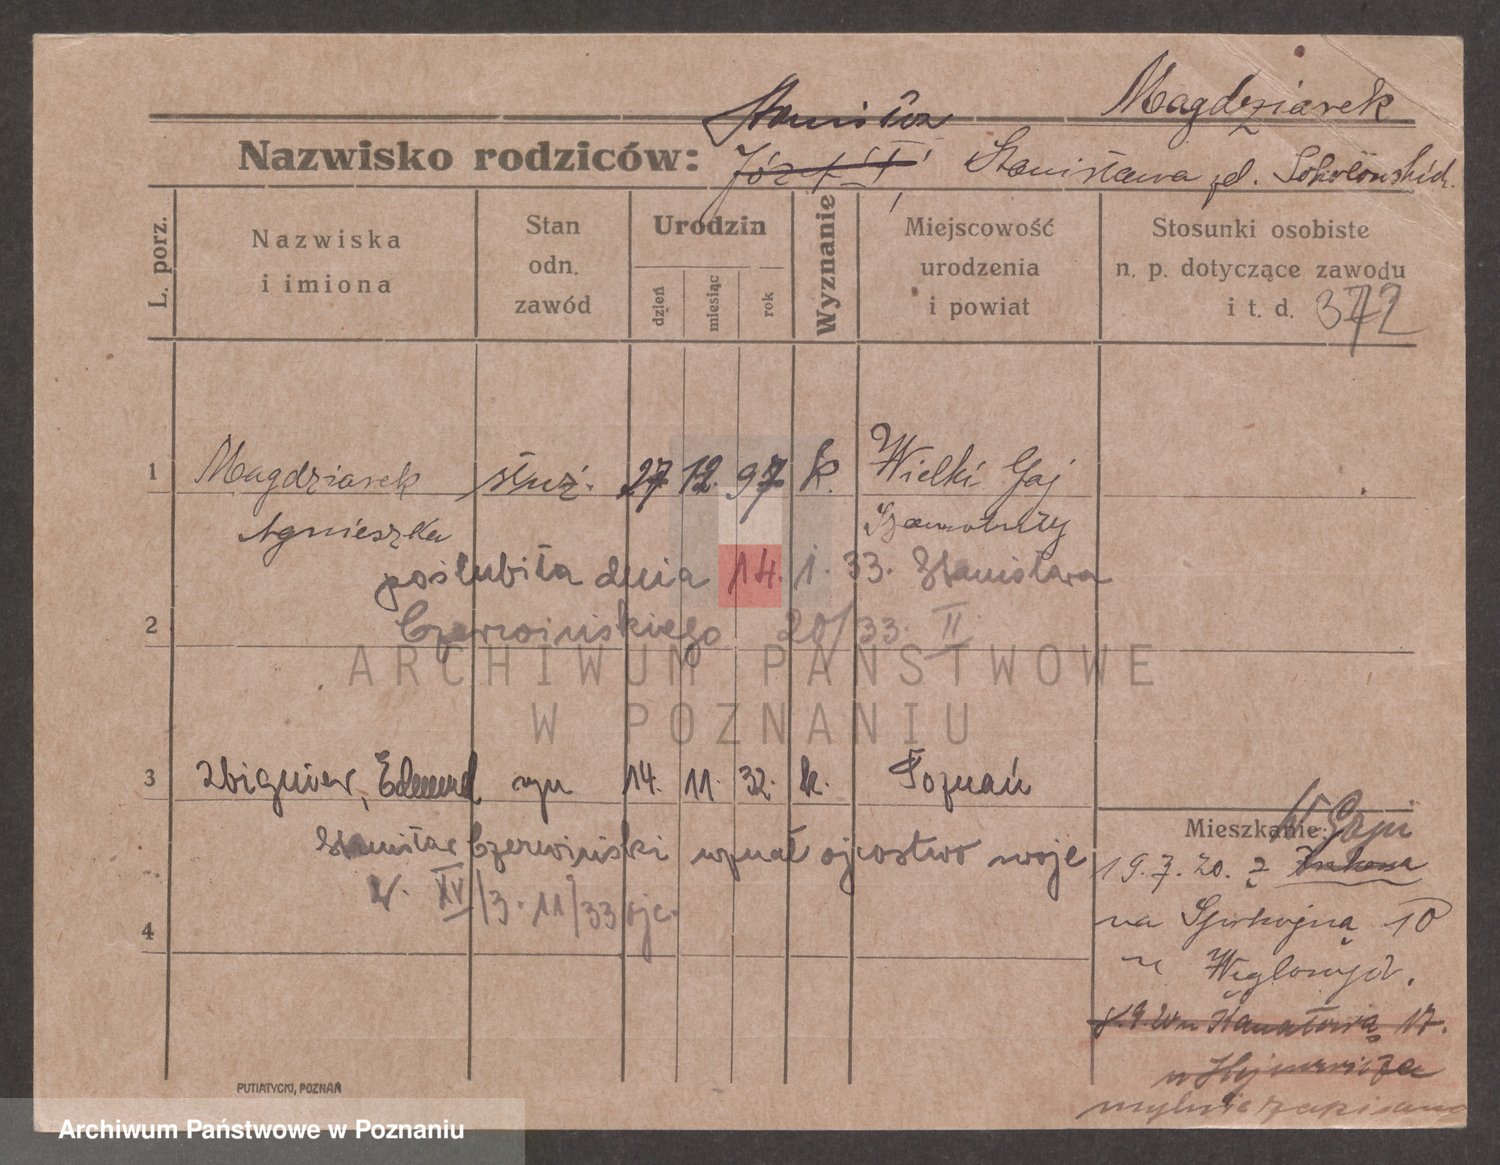 Magdziarek
Stanisław
Nazwisko rodziców: Józef i Stanisława zd. Sokołowskich
L. porz.
Nazwiska i imiona
Stan odn. zawód
Urodzin
dzień
miesiąc
rok
Wyznanie
Miejscowość urodzenia i powiat
Stosunki osobiste n. p. dotyczące zawodu i t. d. 372
1 Magdziarek służ. 27 12. 97 k. Wielki Gaj
Agnieszka Szamotuły
poślubiła dnia 14. 1. 33. Stanisława
2 Czerwińskiego 20/33. II
ARCHIWUM PAŃSTWOWE
W POZNANIU
3 Zbigniew, Edmund syn 14. 11. 32. k. Poznań
Stanisław Czerwiński uznał ojcostwo swoje
XV/3. 11/33
4
Mieszkanie:
19.7.20. z
na Spokojną 10
u
Kanałową 17.
mylnie zapisano
PUTIATYCKI, POZNAŃ
Archiwum Państwowe w Poznaniu